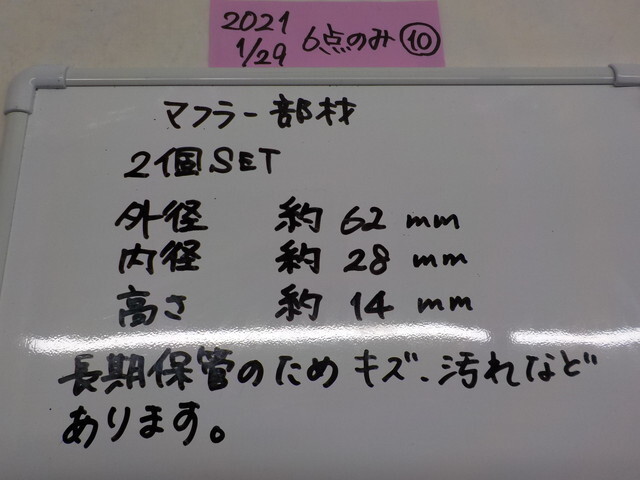 2021
1/29 6点のみ ⑩
マフラー部材
2個SET
外径 約 62 mm
内径 約 28 mm
高さ 約 14 mm
長期保管のためキズ、汚れなど
あります。